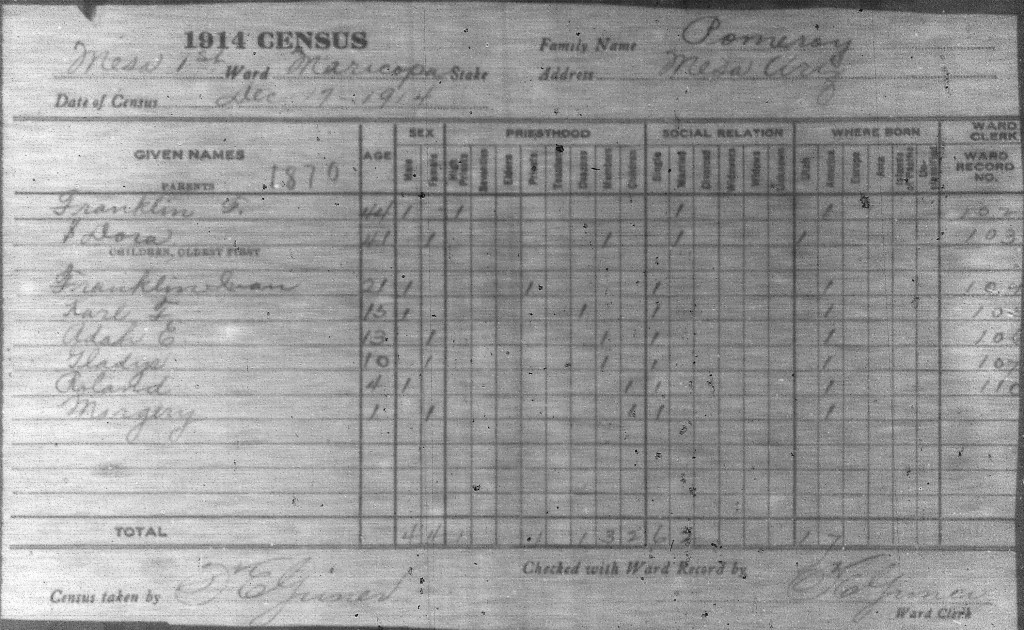 1914 CENSUS
Family Name Pomeroy
Mesa 1st Ward Maricopa Stake
Address Mesa Ariz
Date of Census Dec 17-1914
GIVEN NAMES AGE SEX PRIESTHOOD SOCIAL RELATION WHERE BORN WARD CLERK
WARD RECORD NO.
Male Female High Priests Seventies Elders Priests Teachers Deacons Members Children Single Married Divorced Widowers Widows Unknown Utah America Europe Asia
PARENTS 1870
Franklin F. 44 1 1 1 1 102
Dora 41 1 1 1 1 103
CHILDREN, OLDEST FIRST
Franklin Ivan 21 1 1 1 1 104
Karl F. 15 1 1 1 1 105
Adah E 13 1 1 1 1 106
Gladys 10 1 1 1 1 107
Roland 4 1 1 1 1 110
Margery 1 1 1 1 1
TOTAL 4 4 1 1 1 3 2 6 2 1 7
Checked with Ward Record by
Census taken by
Ward Clerk